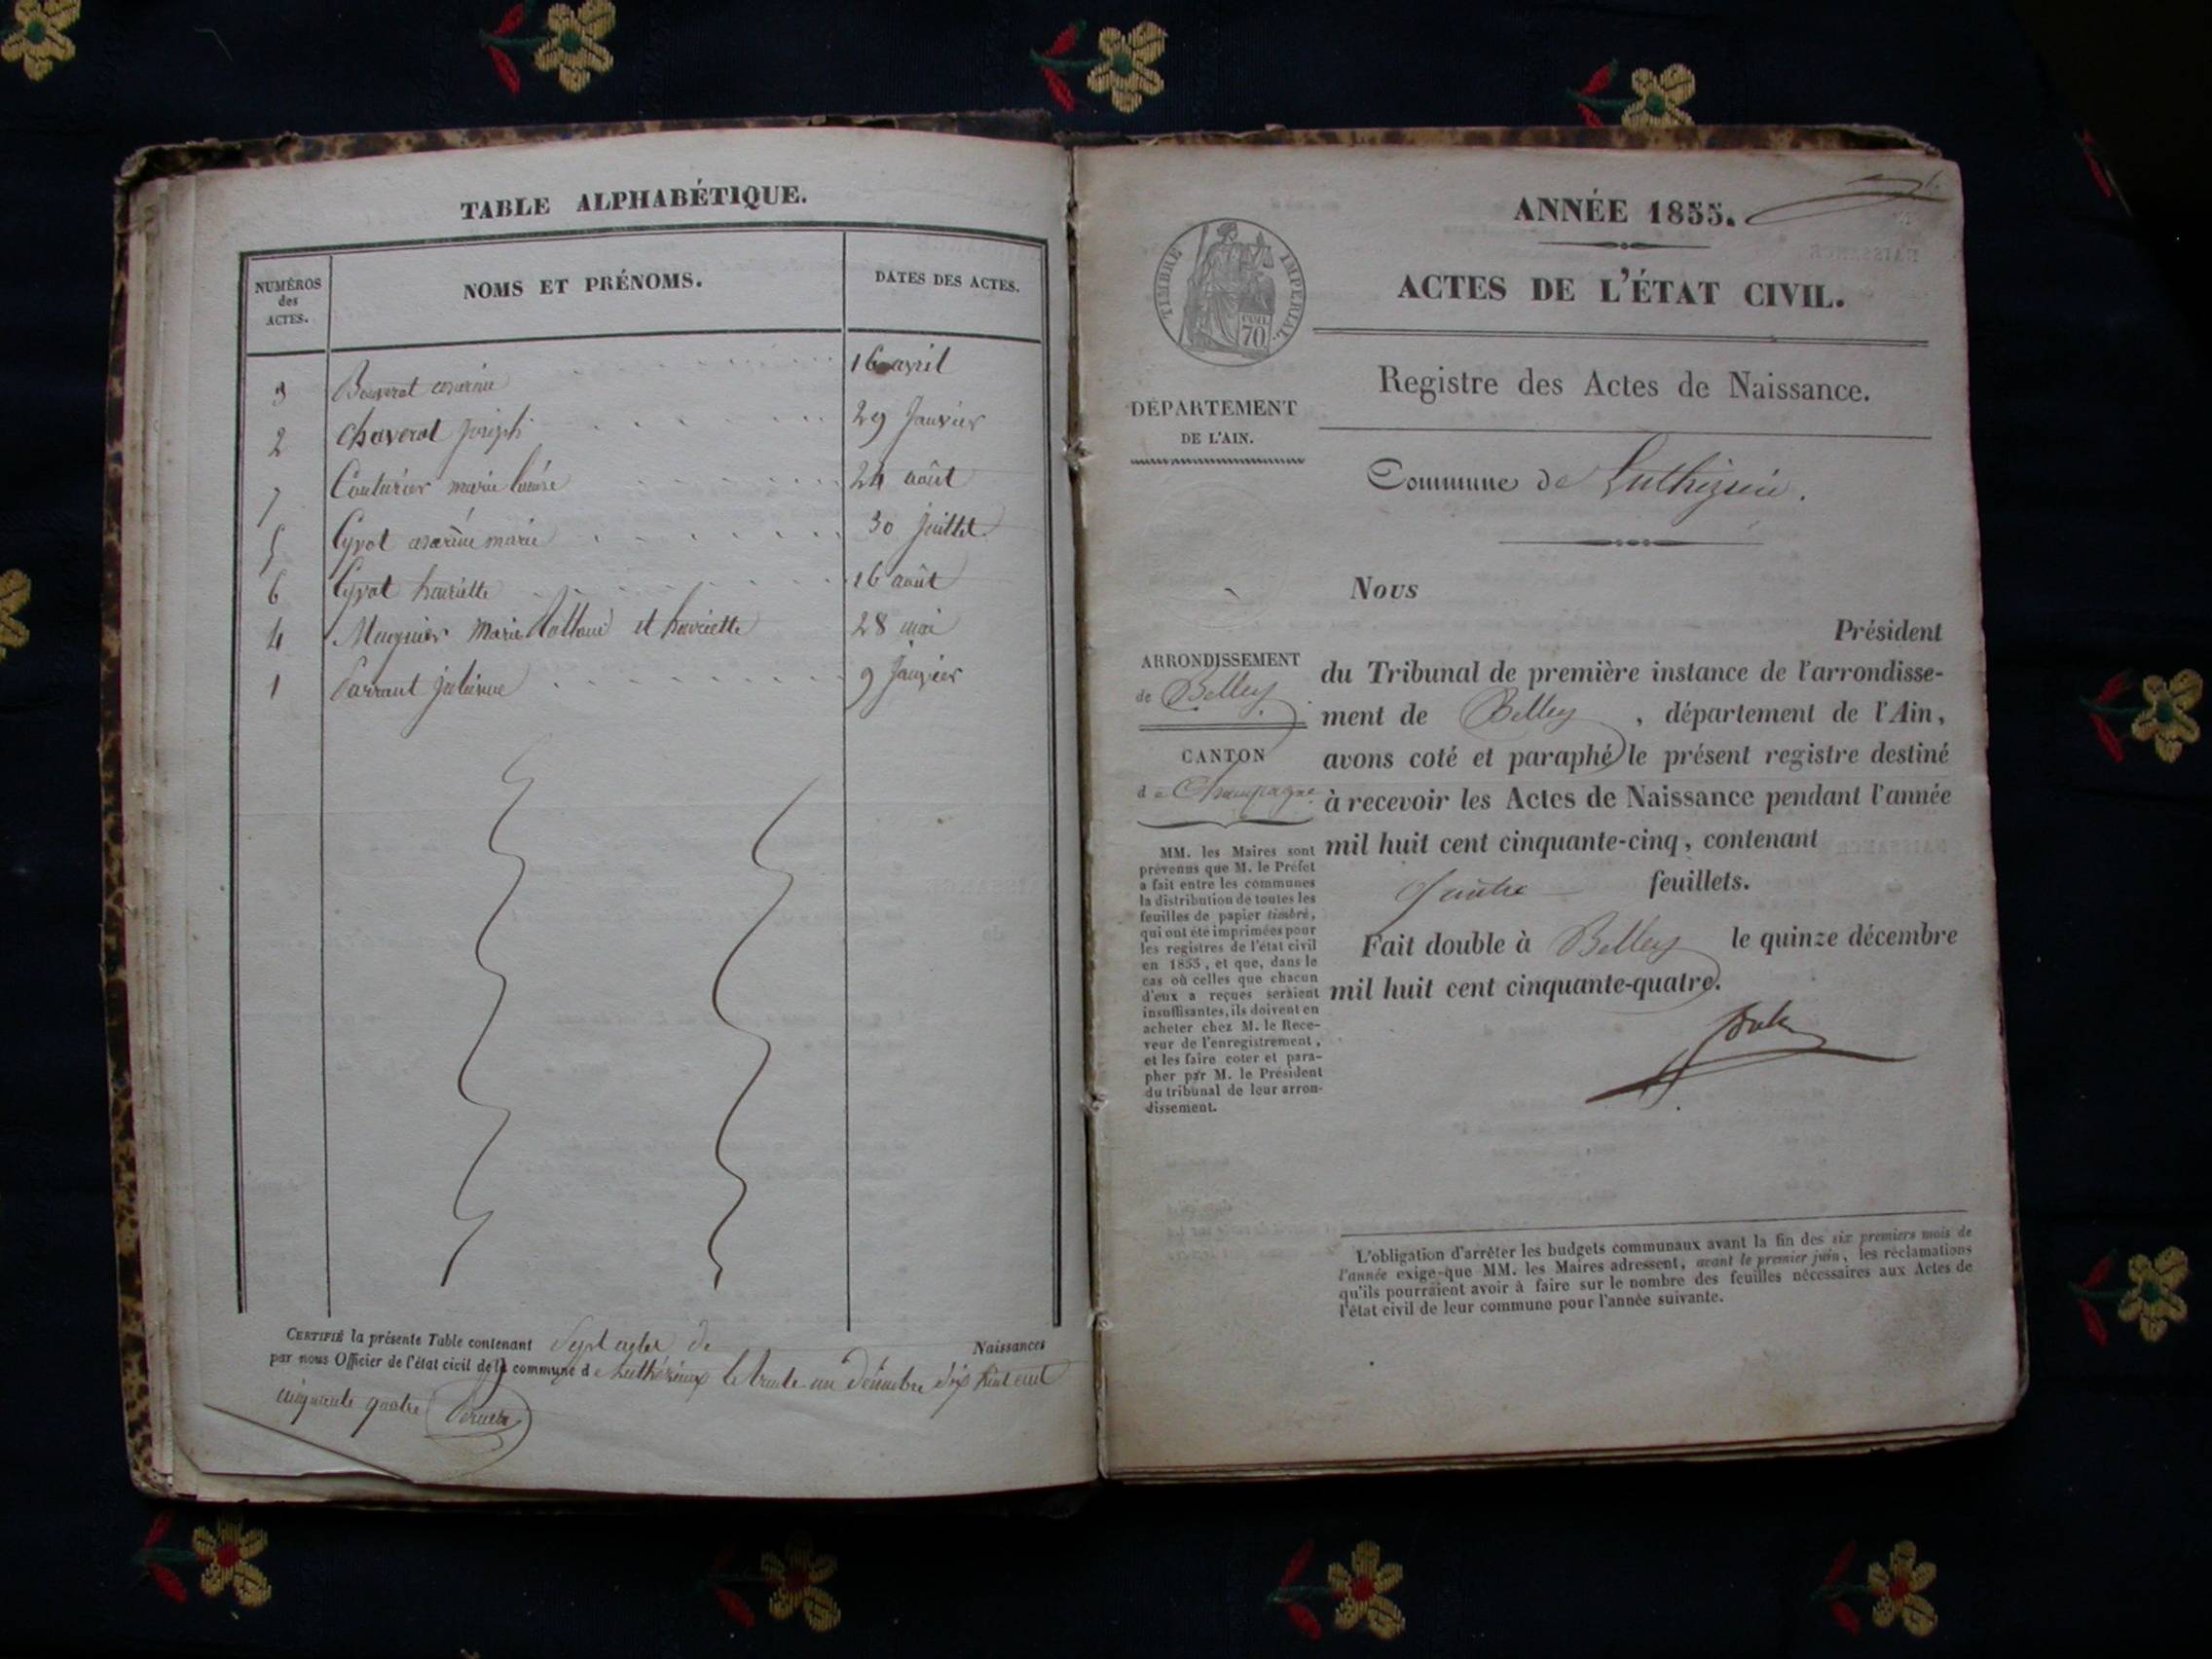 TABLE ALPHABÉTIQUE.
NUMÉROS
des
ACTES.
NOMS ET PRÉNOMS.
DATES DES ACTES.
3 16 avril
2 Chaverot Joseph 29 Janvier
7 Couturier marie 24 août
5 Cyvot marie 30 Juillet
6 Cyvot henriette 16 août
4 Marie et henriette 28 mai
1 9 Janvier
CERTIFIÉ la présente Table contenant Sept actes de Naissances
par nous Officier de l'état civil de la commune de le trente un Décembre dix huit cent
cinquante quatre
ANNÉE 1855.
ACTES DE L'ÉTAT CIVIL.
TIMBRE IMPÉRIAL.
70
DÉPARTEMENT
DE L'AIN.
Registre des Actes de Naissance.
Commune de
Nous
Président
ARRONDISSEMENT
de Belley
CANTON
de Champagne
du Tribunal de première instance de l'arrondisse-
ment de Belley, département de l'Ain,
avons coté et paraphé le présent registre destiné
à recevoir les Actes de Naissance pendant l'année
mil huit cent cinquante-cinq, contenant
quatre feuillets.
Fait double à Belley le quinze décembre
mil huit cent cinquante-quatre.
MM. les Maires sont
prévenus que M. le Préfet
a fait entre les communes
la distribution de toutes les
feuilles de papier timbré,
qui ont été imprimées pour
les registres de l'état civil
en 1855, et que, dans le
cas où celles que chacun
d'eux a reçues seraient
insuffisantes, ils doivent en
acheter chez M. le Rece-
veur de l'enregistrement,
et les faire coter et para-
pher par M. le Président
du tribunal de leur arron-
dissement.
L'obligation d'arrêter les budgets communaux avant la fin des six premiers mois de
l'année exige que MM. les Maires adressent, avant le premier juin, les réclamations
qu'ils pourraient avoir à faire sur le nombre des feuilles nécessaires aux Actes de
l'état civil de leur commune pour l'année suivante.